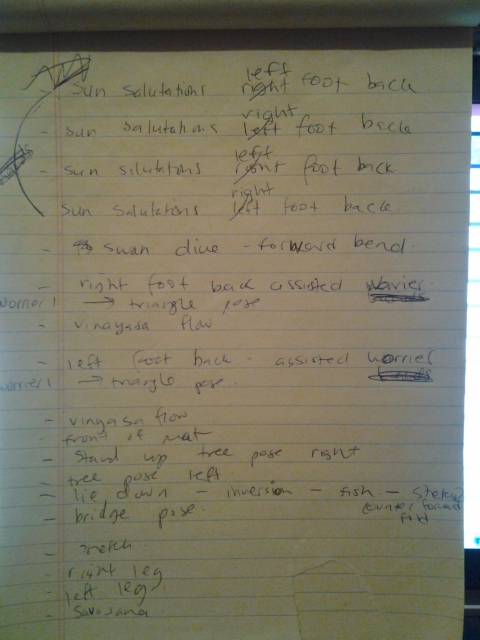 left
- sun salutations right foot back
right
- sun salutations left foot back
left
- sun silutations right foot back
right
sun salutations left foot back.
- swan dive - forward bend.
- right foot back assisted Warier
worrier 1 → triangle pose
- vinayasa flow
- left foot back - assisted worrier
worrier 1 → triangle pose.
- vingasa flow
- front of mat
- Stand up tree pose right
- tree pose left.
- lie down - inversion - fish -
- bridge pose. counter forward
fold
-
- right leg
- left leg
- savasana